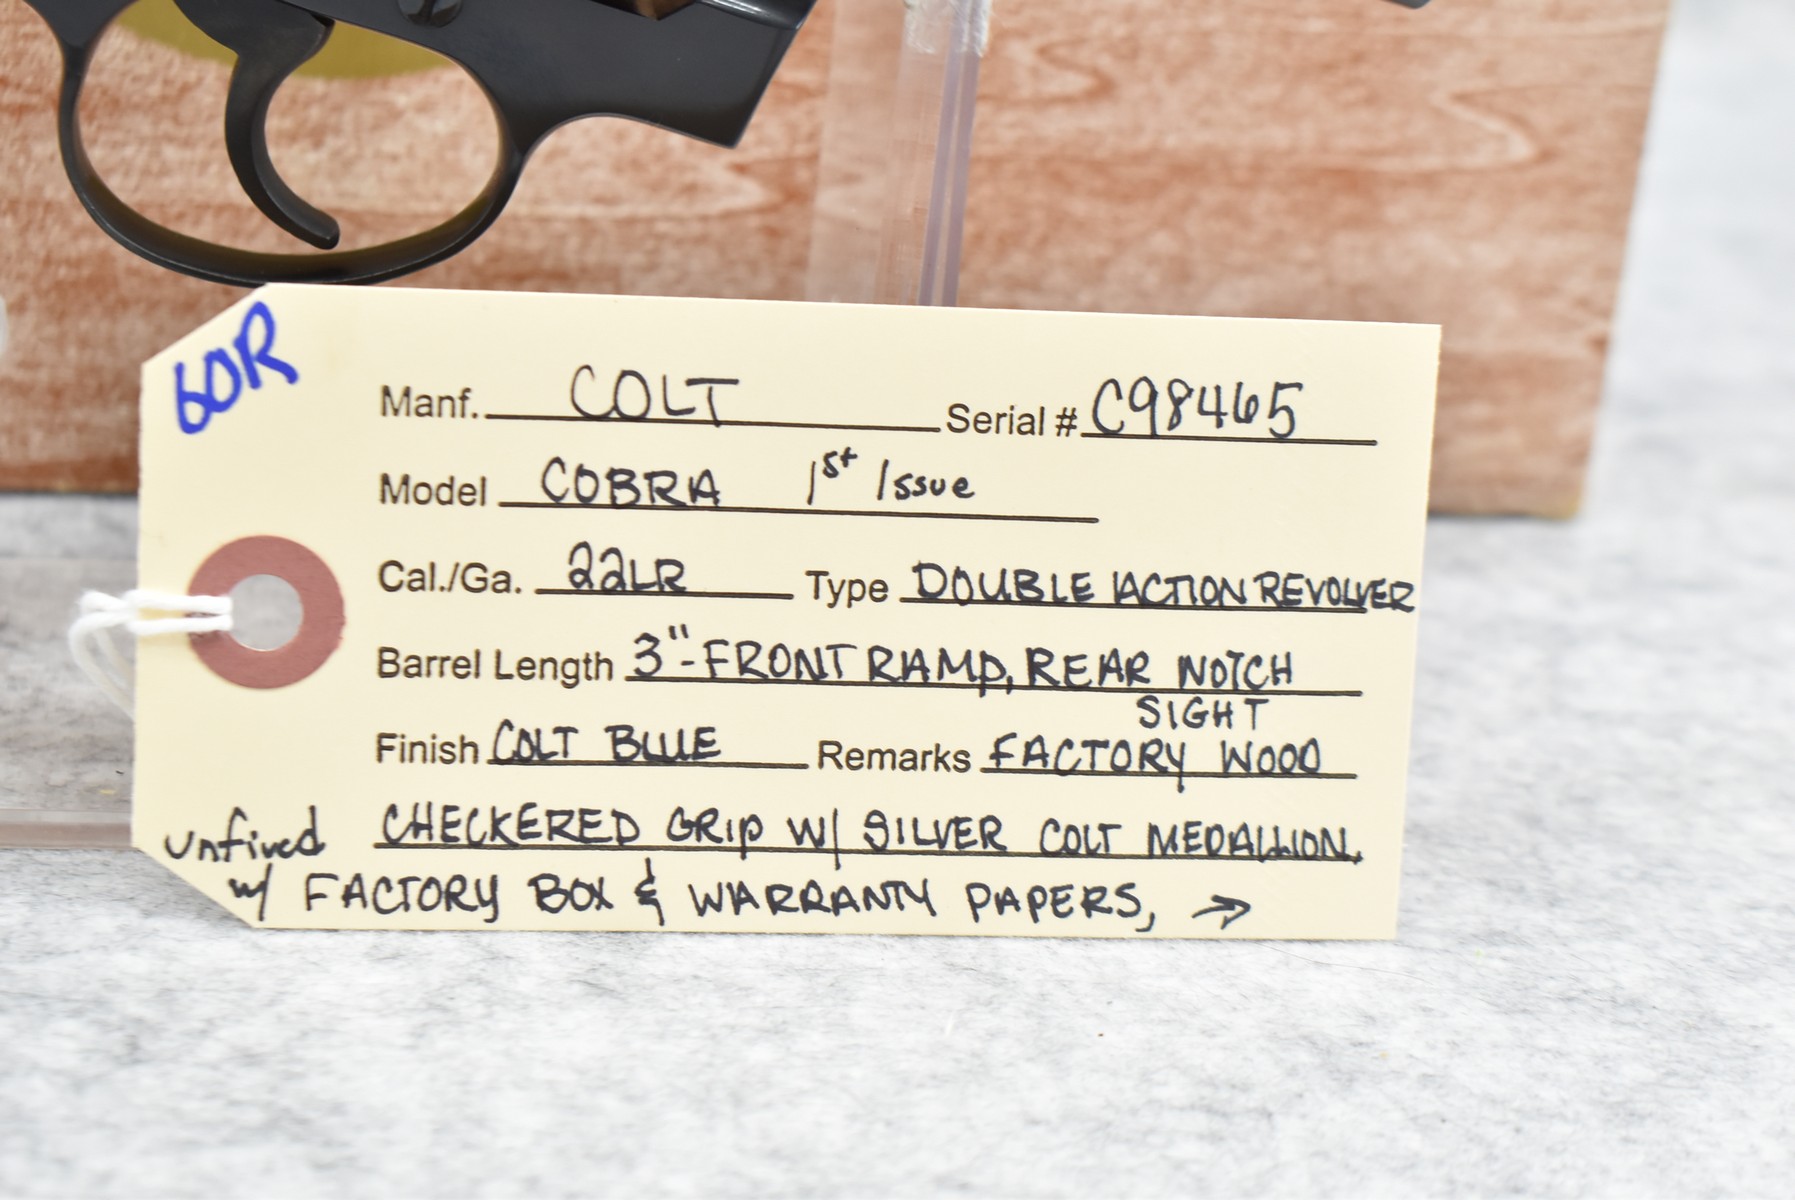 60R
Manf. COLT Serial # C98465
Model COBRA 1st Issue
Cal./Ga. 22LR Type DOUBLE ACTION REVOLVER
Barrel Length 3"-FRONT RAMP, REAR NOTCH
SIGHT
Finish COLT BLUE Remarks FACTORY WOOD
unfired CHECKERED GRIP W/ SILVER COLT MEDALLION,
w/ FACTORY BOX & WARRANTY PAPERS, →